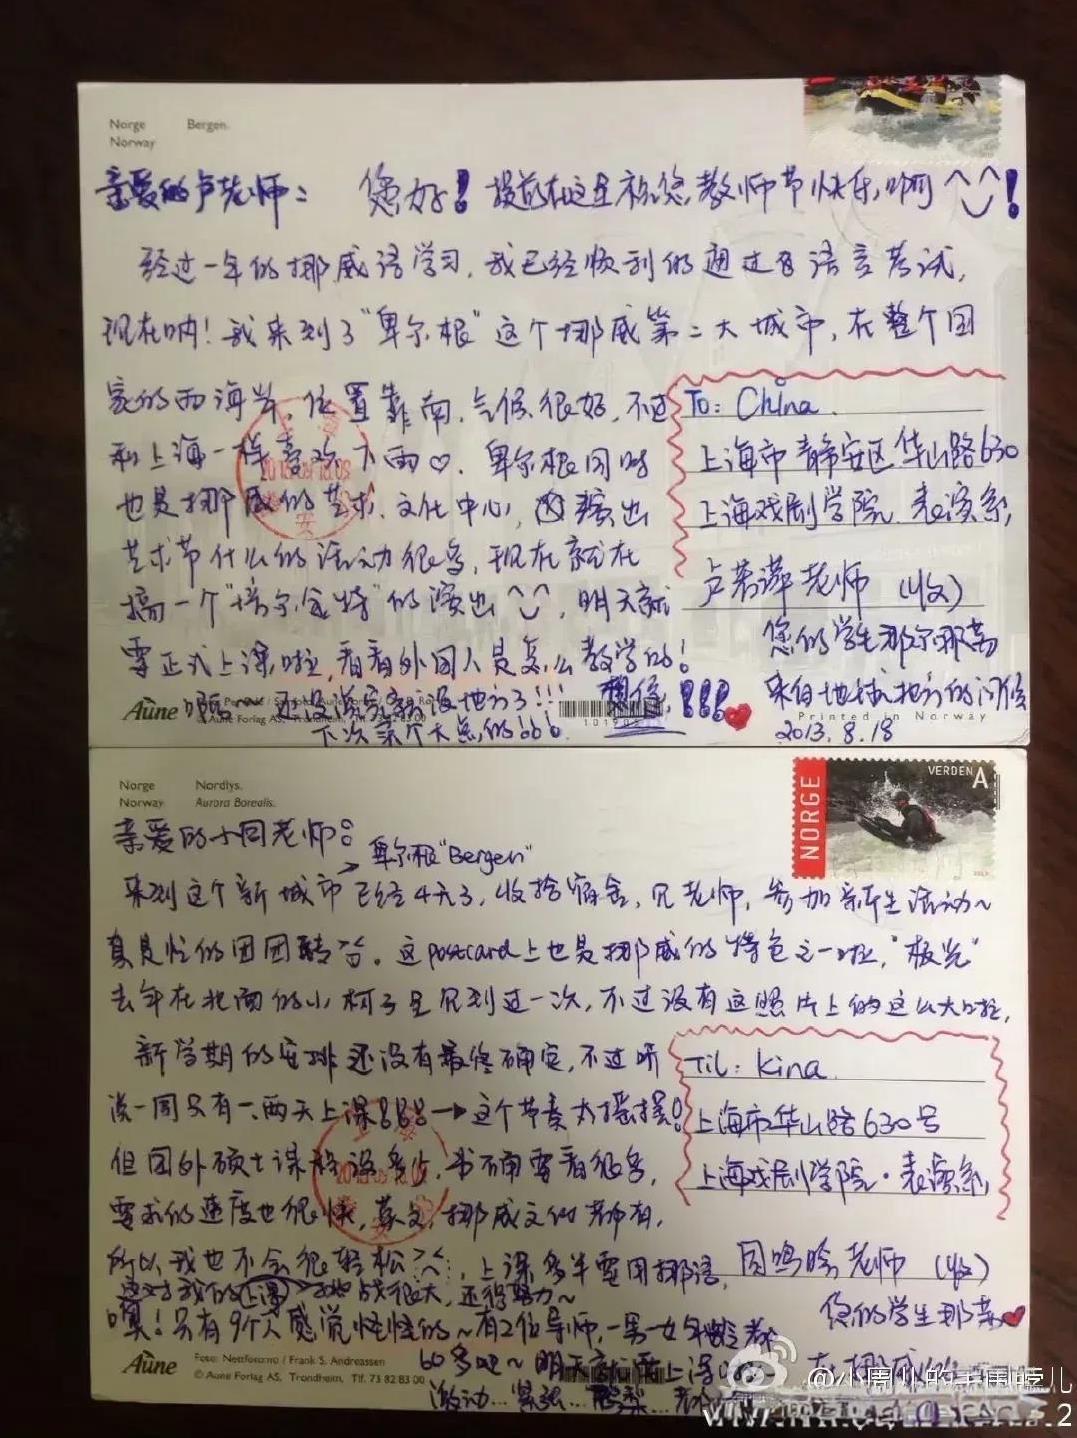 Norge Bergen.
Norway
亲爱的卢老师: 您好! 提前在这里祝您教师节快乐,啊 ^_^!
经过一年的挪威语学习,我已经顺利的通过语言考试,
现在呐!我来到了“卑尔根”这个挪威第二大城市,在整个国
家的西海岸,位置靠南,气候很好,不过
和上海一样喜欢下雨♡. 卑尔根同时
也是挪威的艺术、文化中心,演出
艺术节什么的活动很多,现在就在
搞一个“培尔·金特”的演出^_^, 明天就
要正式上课啦,看看外国人是怎么教学的!
还没写就没地方了!!!
下次来个大点的!!!
To: China.
上海市静安区华山路630
上海戏剧学院 表演系
卢若萍老师 (收)
您的学生那尔那茜
来自地球北方的问候
2013.8.18
Aune
© Aune Forlag AS. Trondheim
Printed in Norway
Norge Nordlys.
Norway Aurora Borealis.
NORGE
VERDEN A
亲爱的小周老师:
卑尔根“Bergen”
来到这个新城市已经4天了,收拾宿舍,见老师,参加新生活动~
真是忙的团团转. 这postcard上也是挪威的特色之一啦,“极光”
去年在北面的小村子里见到过一次,不过没有这照片上的这么大啦,
新学期的安排还没有最终确定,不过听
说一周只有一、两天上课!!! → 这个节奏太摇摆!
但国外硕士课程没多少,书确要看很多,
要求的速度也很快,英文,挪威文的都有,
所以我也不会很轻松, 上课多半要用挪语,
这对我的上课挑战很大,还得努力~
噢!只有9个人感觉怪怪的~有2位导师,一男一女年龄都
60多吧~ 明天就要上课
激动... 紧张...
Til: Kina.
上海市华山路630号
上海戏剧学院·表演系
周鸣晗老师 (收)
你的学生那茜
在挪威的
Aune
Foto: Nettfotomo / Frank S. Andreassen
© Aune Forlag AS, Trondheim, Tlf. 73 82 83 00